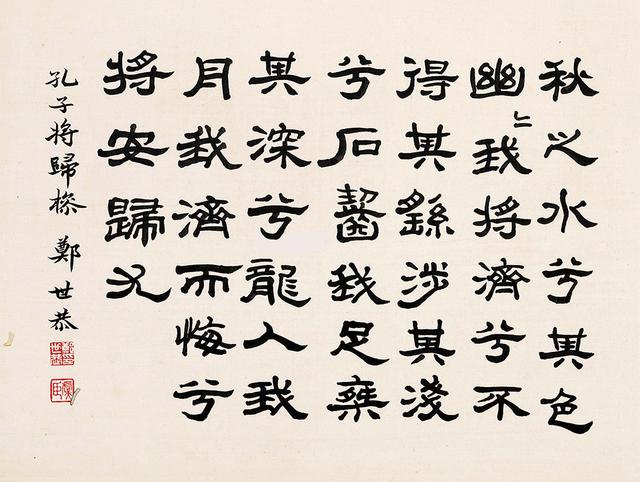 秋之水兮其色
幽〻我將濟兮不
得其繇涉其淺
兮石齧我足乘
其深兮龍入我
舟我濟而悔兮
將安歸尤
孔子將歸操 鄭世恭